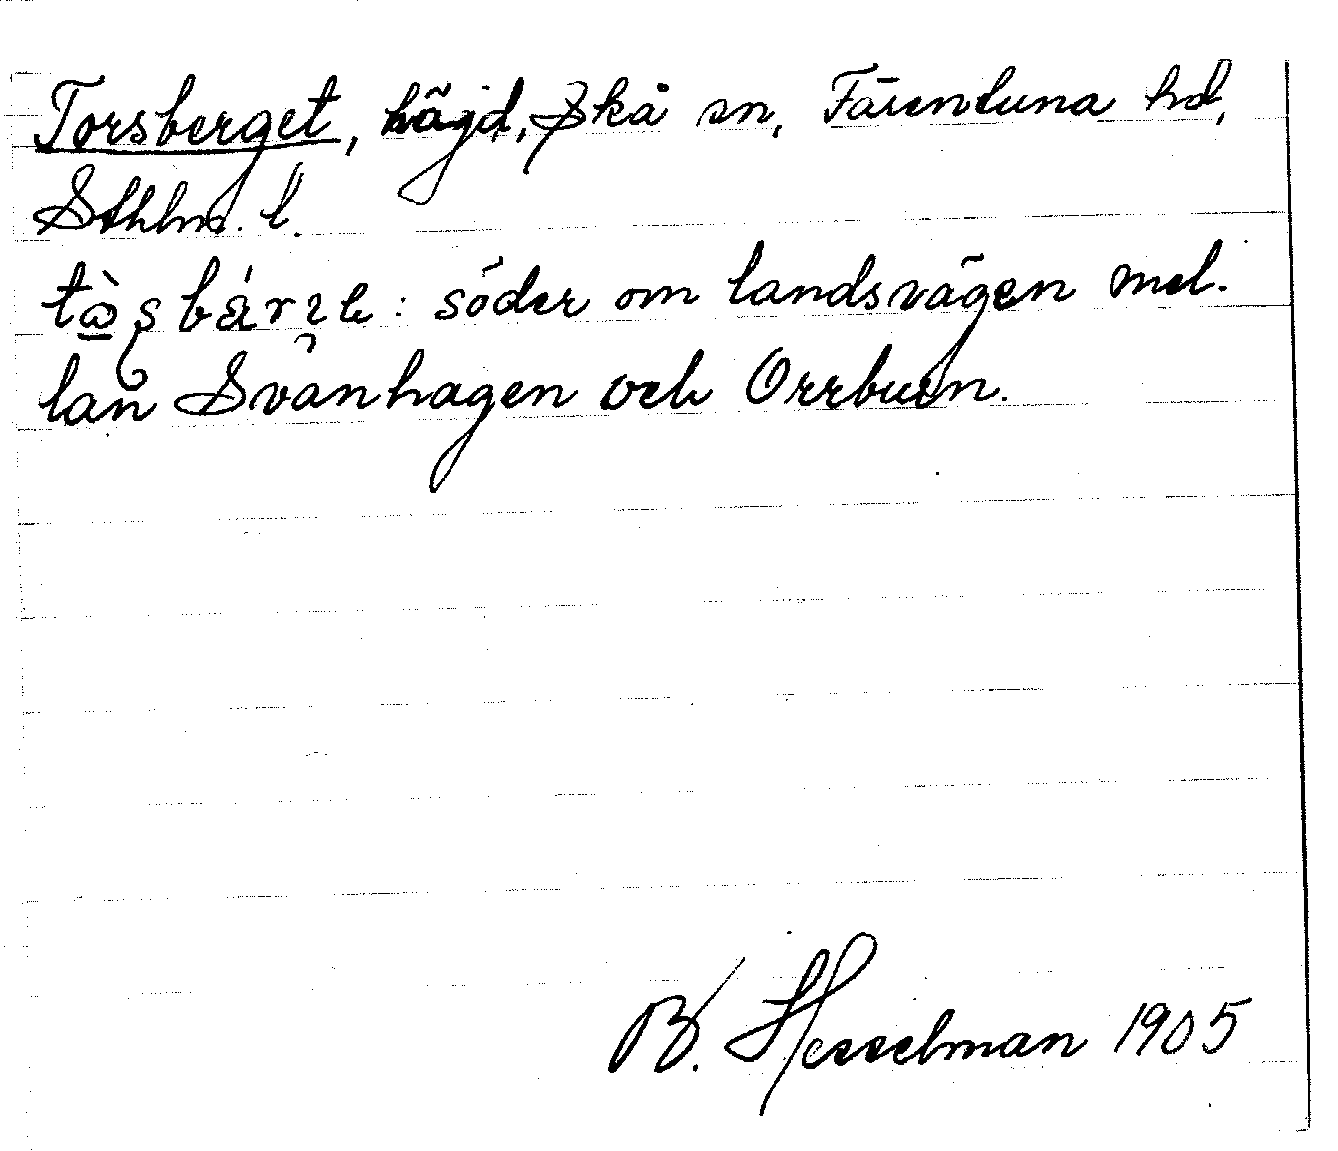 Torsberget, höjd, Skå sn, Färentuna hd,
Sthlm. l.
söder om landsvägen mel-
lan Svanhagen och Orrburn.
B. Hesselman 1905